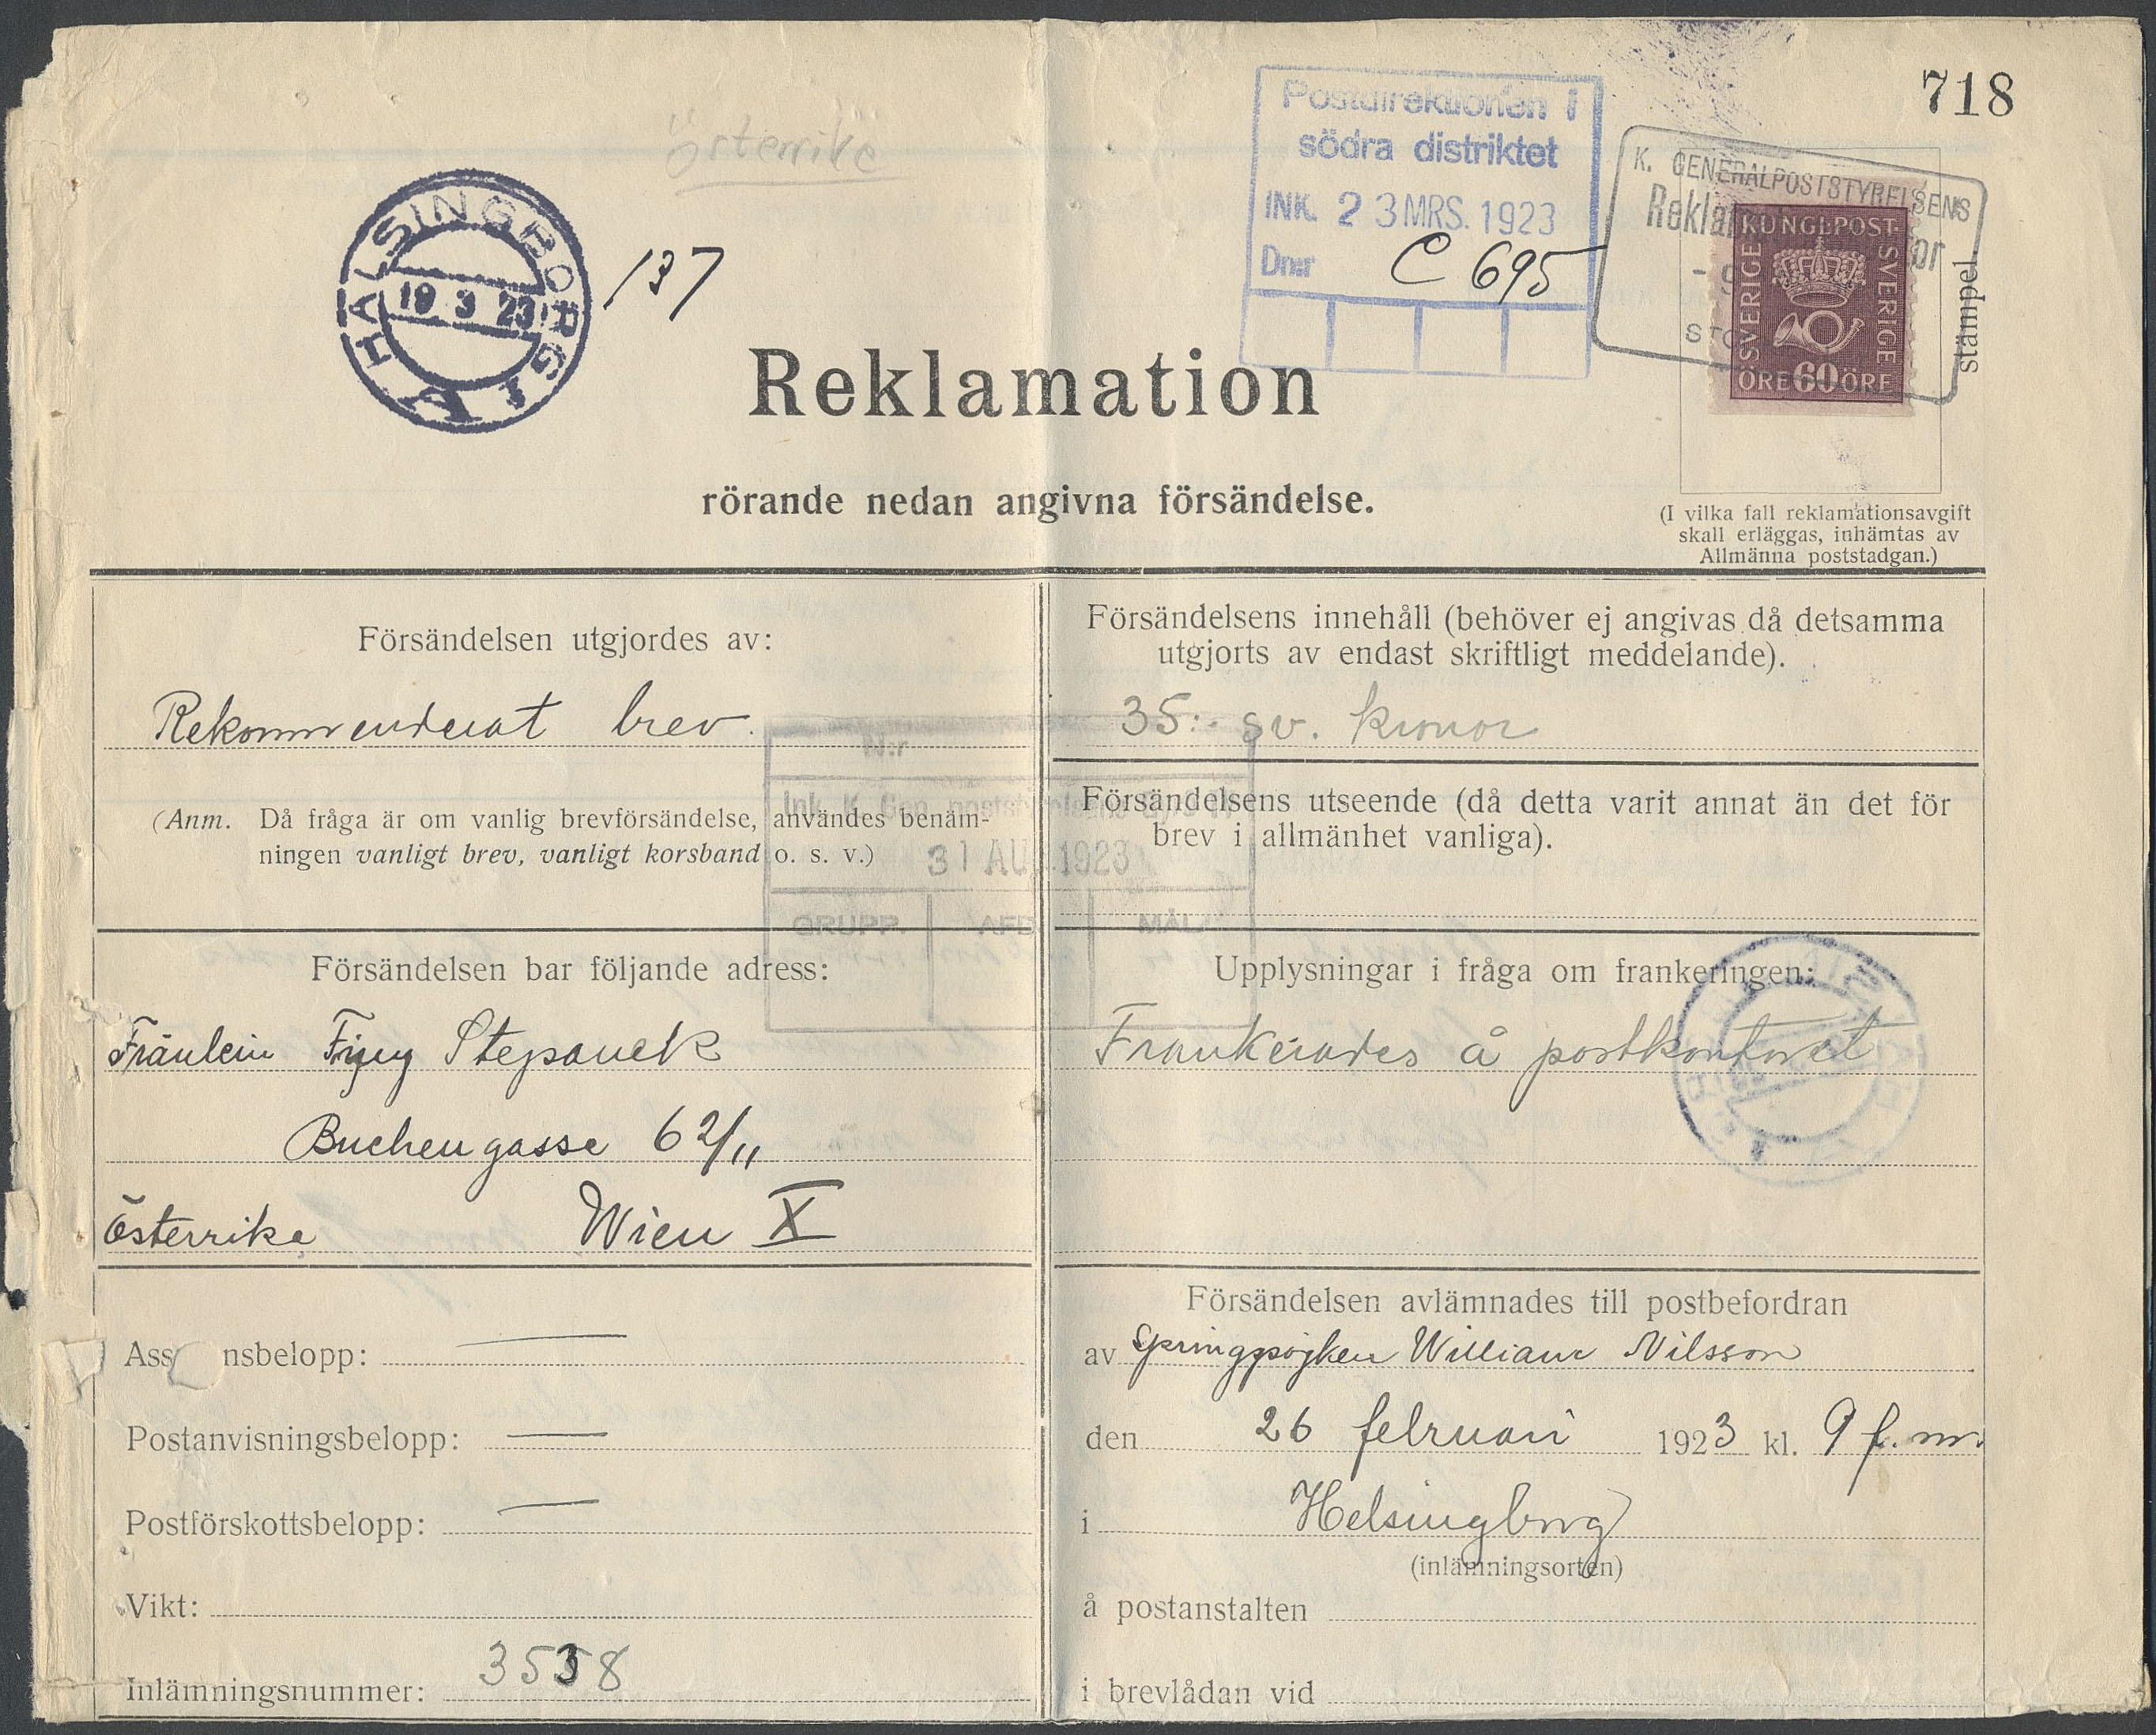 718
Österrike
HÄLSINGBORG 1
19 3 23
137
Postdirektionen i
södra distriktet
INK. 23 MRS. 1923
Dnr C 695
K. GENERALPOSTSTYRELSENS
KUNGL POST-
SVERIGE
SVERIGE
ÖRE 60 ÖRE
stämpel
Reklamation
rörande nedan angivna försändelse.
(I vilka fall reklamationsavgift
skall erläggas, inhämtas av
Allmänna poststadgan.)
Försändelsen utgjordes av:
Rekommenderat brev.
(Anm. Då fråga är om vanlig brevförsändelse, användes benäm-
ningen vanligt brev, vanligt korsband o. s. v.)
N:r
Ink. K. Gen.
31 AUG. 1923
GRUPP. AFD MÅL
Försändelsen bar följande adress:
Fräulein Finy Stepanek
Buchengasse 62/11
Österrike Wien X
Ass nsbelopp:
Postanvisningsbelopp:
Postförskottsbelopp:
Vikt:
Inlämningsnummer: 3538
Försändelsens innehåll (behöver ej angivas då detsamma
utgjorts av endast skriftligt meddelande).
35:- sv. kronor
Försändelsens utseende (då detta varit annat än det för
brev i allmänhet vanliga).
Upplysningar i fråga om frankeringen:
Frankerades å postkontoret
Försändelsen avlämnades till postbefordran
av Springpojken William Nilsson
den 26 februari 1923 kl. 9 f. m.
i Helsingborg
(inlämningsorten)
å postanstalten
i brevlådan vid